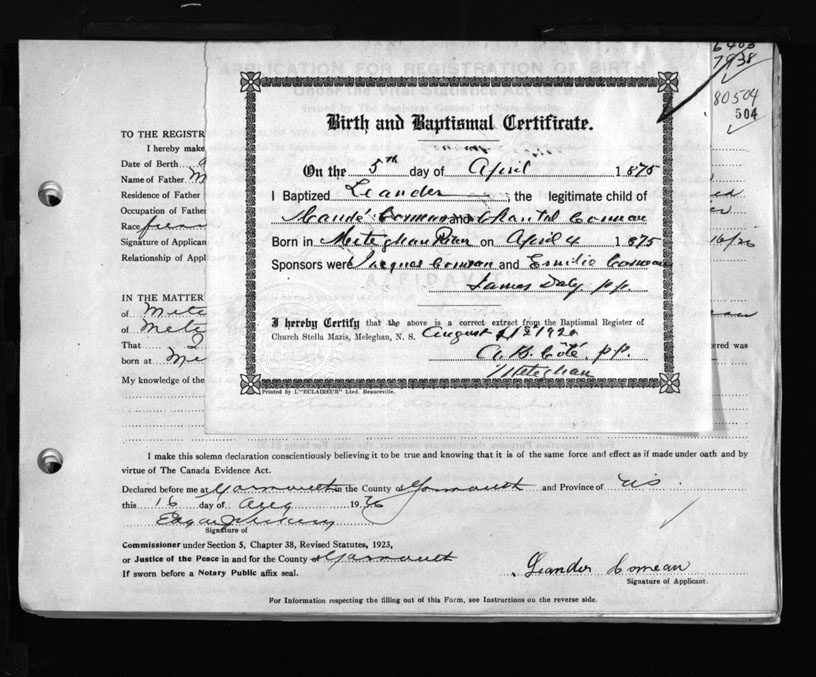 6403
7938
80504
504
APPLICATION FOR REGISTRATION OF BIRTH
Birth and Baptismal Certificate.
On the 5th day of April 1875
I Baptized Leander, the legitimate child of
and Chantal Comeau
Born in Meteghan River on April 4 1875
Sponsors were Jacques Comeau and Emilie Comeau
James Daly p.p.
I hereby Certify that the above is a correct extract from the Baptismal Register of
Church Stella Maris, Meteghan, N. S. August
A. B. Côté, p.p.
Meteghan
Printed by L'"ECLAIREUR" Lted. Beauceville.
TO THE REGISTR
I hereby make
Date of Birth
Name of Father M
Residence of Father
Occupation of Father
Race
Signature of Applican
Relationship of Appl
IN THE MATTER
of Mete
of Mete
That
born at Me
My knowledge of the
I make this solemn declaration conscientiously believing it to be true and knowing that it is of the same force and effect as if made under oath and by
virtue of The Canada Evidence Act.
Declared before me at Yarmouth in the County of Yarmouth and Province of NS
this 16 day of Aug 1926
Signature of
Commissioner under Section 5, Chapter 38, Revised Statutes, 1923,
or Justice of the Peace in and for the County of Yarmouth
If sworn before a Notary Public affix seal.
Leander Comeau
Signature of Applicant.
For Information respecting the filling out of this Form, see Instructions on the reverse side.